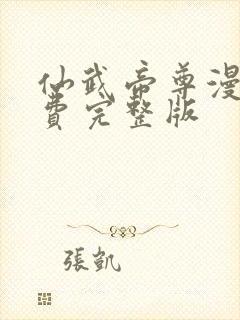 仙武帝尊漫
費完整版
張凱